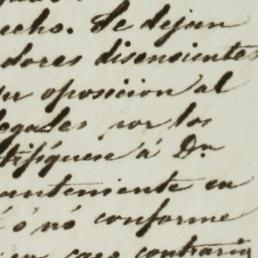 echo. Se dejan
dores disensientes
su oposicion al
egales por los
tifíquese á Dn
anteniente en
ó nó conforme
en caso contrario